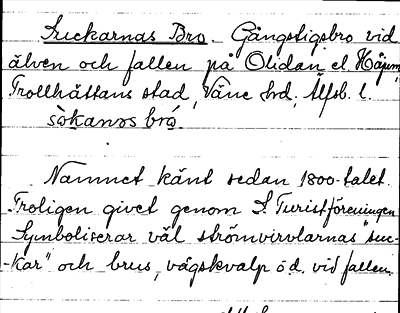 Suckarnas Bro. Gångstigsbro vid
älven och fallen på Olidan el. Höjum,
Trollhättans stad, Väne hrd, Älfsb. l.
sòkanas bró.
Namnet känt sedan 1800-talet.
Troligen givet genom S. Turistföreningen
Symboliserar väl strömvirvlarnas "suc-
-kar" och brus, vågskvalp o.d. vid fallen.